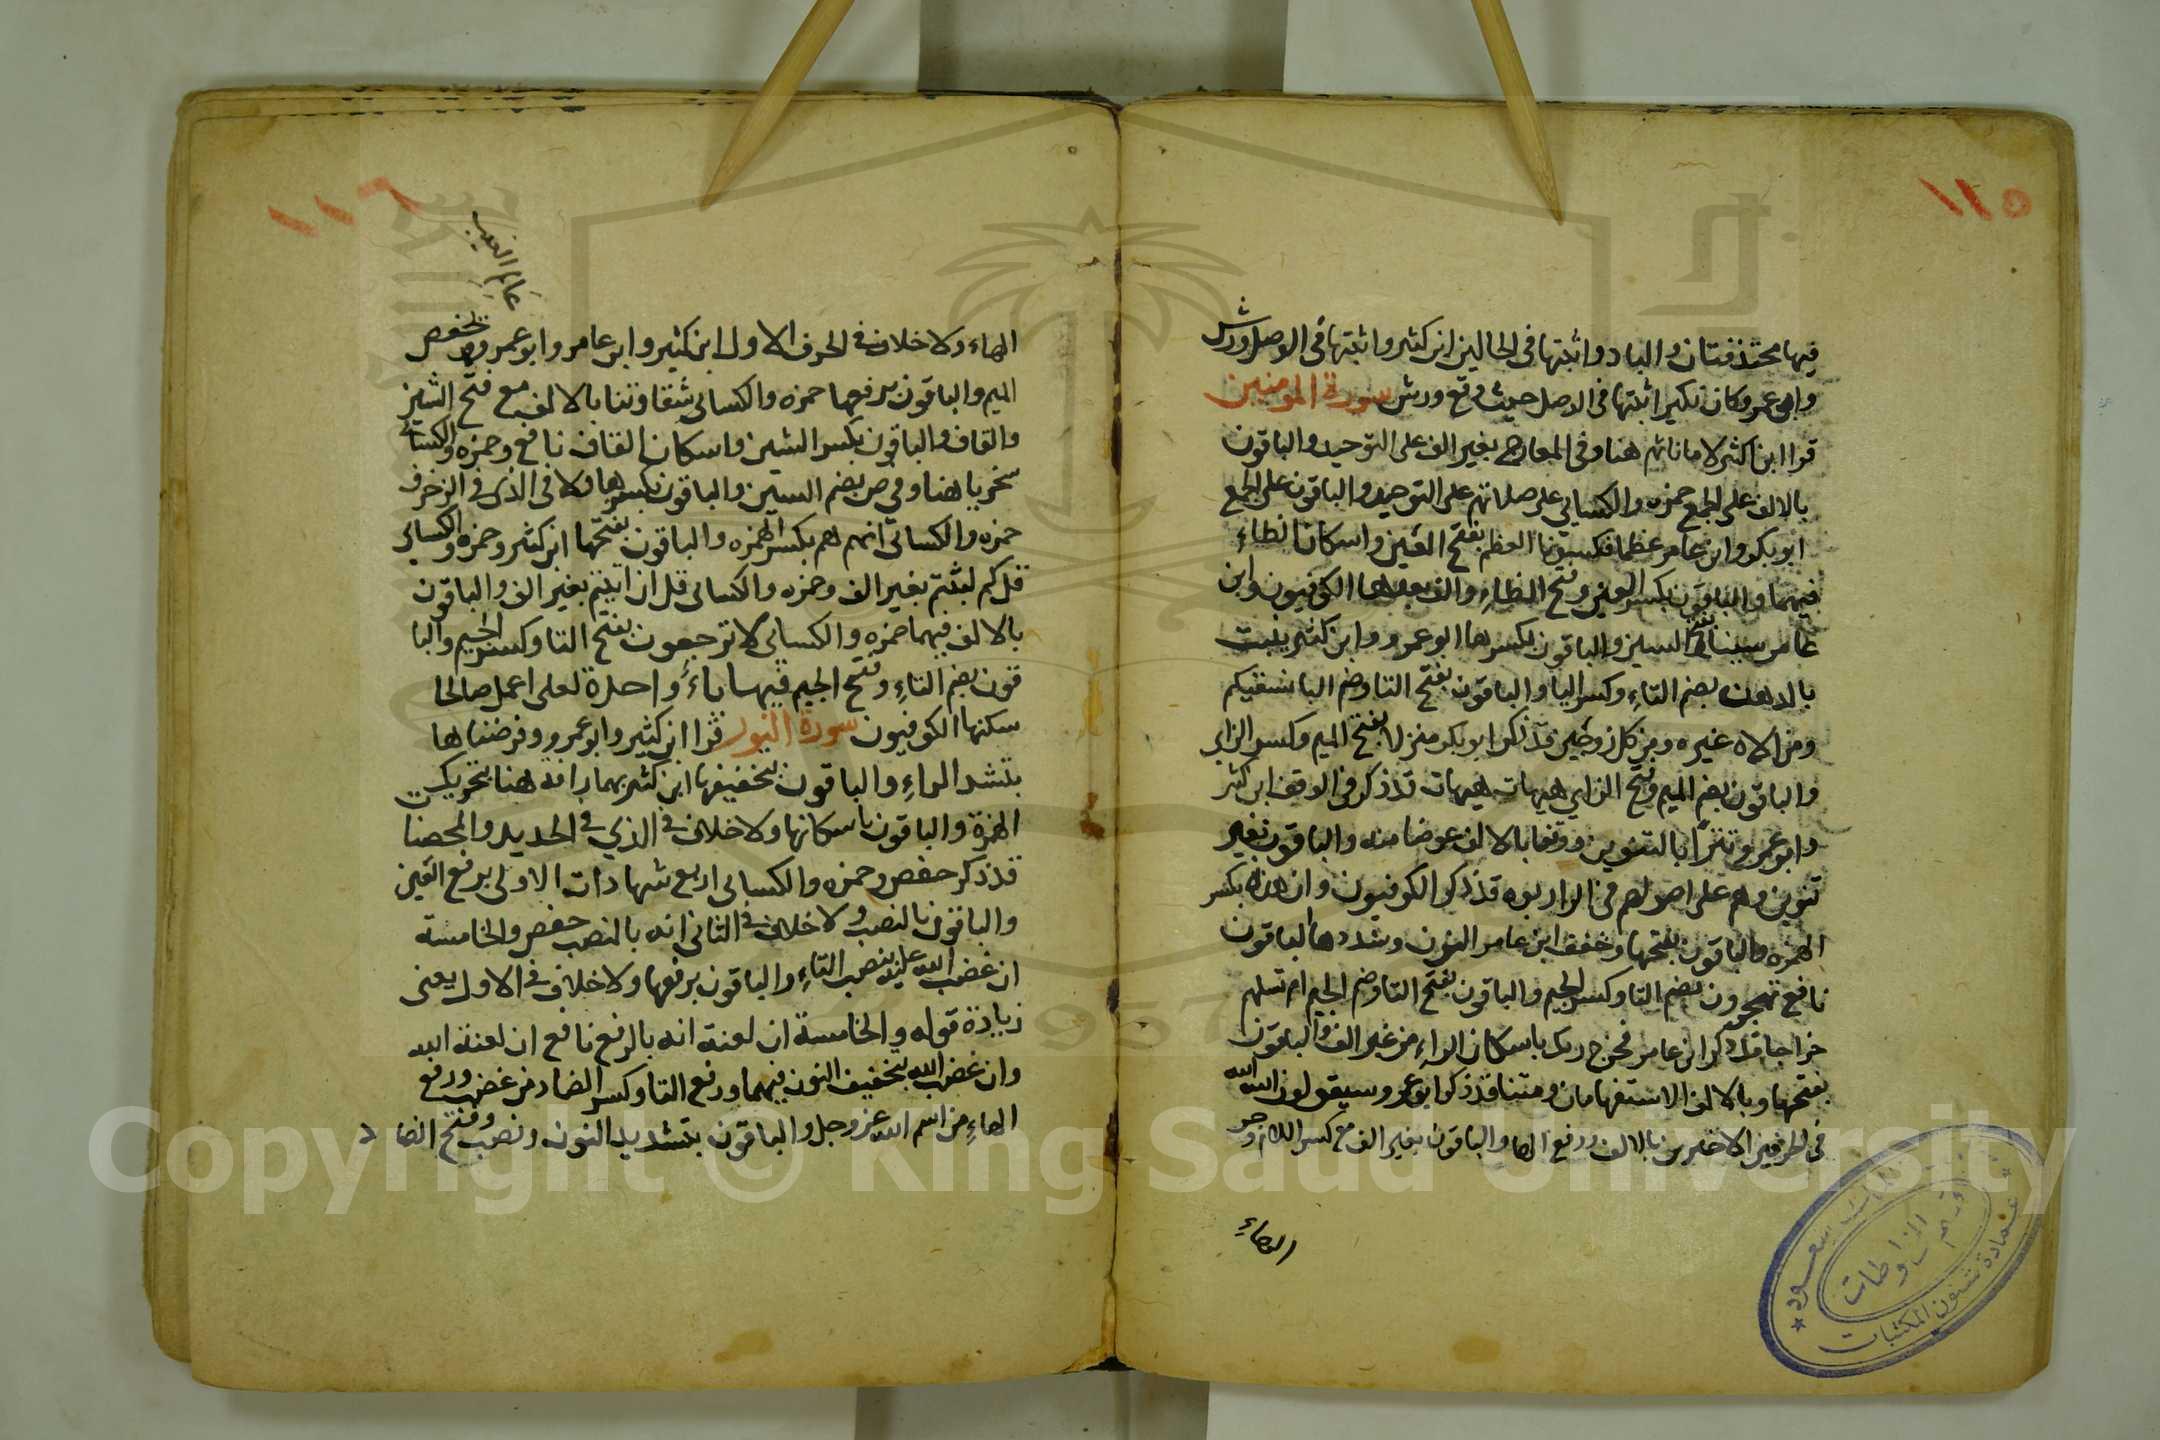 ١١٥
فيها محذفتان والباد واثبتها فى الحالين ابن كثير واثبتها فى الوصل ورش
وابو عمرو وكان نكير اثبتها فى الوصل حيث وقع ورش سورة المومنين
قرا ابن كثير لاماناتهم هنا وفى المعارج بغير الف على التوحيد والباقون
بالالف على الجمع حمزه والكسايى على صلاتهم على التوحيد والباقون على الجمع
ابو بكر وابن عامر عظما فكسونا العظم بفتح العين واسكان الظاءِ
فيهما والباقون بكسر العين وفتح الظاءِ والف بعدها الكوفيون وابن
عامر سيناء بفتح السين والباقون بكسرها ابو عمرو وابن كثير ينبت
بالدهن بضم التاءِ وكسر البا والباقون بفتح التا وضم البا نسقيكم
ومن الاه غيره ومن كل زوجين قد ذكر ابو بكر منزلا بفتح الميم وكسر الزاى
والباقون بضم الميم وفتح الزاي هيهات هيهات قد ذكر فى الوقف ابن كثير
وابو عمرو تترًا بالتنوين ووقفا بالالف عوضا منه والباقون بغير
تنوين وهم على اصولهم فى الرا ربوه قد ذكر الكوفيون وان هذه بكسر
الهمزه والباقون بفتحها وخفف ابن عامر النون وشددها الباقون
نافع تهجرون بضم التا وكسر الجيم والباقون بفتح التا وضم الجيم ام تسلهم
خراجا قد ذكر ابن عامر فخرج ربك باسكان الراءِ من غير الف والباقون
بفتحها وبالالف الاستفهامان ومتنا قد ذكر ابو عمرو سيقولون الله الله
فى الحرفين الاخيرين بالالف ورفع الها والباقون بغير الف مع كسر اللام وجر
الهاءِ
١١٦
عالم الغيب
الهاء ولا خلاف فى الحرف الاول ابن كثير وابن عامر وابو عمرو وحفص بخفض
الميم والباقون برفعها حمزه والكسايى شقاوتنا بالالف مع فتح الشين
والقاف والباقون بكسر الشين واسكان القاف نافع وحمزه والكساي
سخريا هنا وفى ص بضم السين والباقون بكسرها ولا فى الذى فى الزخرف
حمزه والكسائى انهم هم بكسر الهمزه والباقون بفتحها ابن كثير وحمزه والكساي
قل كم لبثتم بغير الف وحمزه والكسايى قل ان لبثتم بغير الف والباقون
بالالف فيهما حمزه والكسايى لا ترجعون بفتح التا وكسر الجيم والبا
قون بضم التاءِ وفتح الجيم فيها ياءٌ واحدة لعلى اعمل صالحا
سكنها الكوفيون سورة النور قرا ابن كثير وابو عمرو وفرضناها
بتشد الراءِ والباقون بتخفيفها ابن كثير بهما رافة هنا بتحريك
الهمزة والباقون باسكانها ولا خلاف فى الذي فى الحديد والمحصنا
قد ذكر حفص وحمزه والكسايى اربع شهادات الاولى برفع العين
والباقون بالنصب ولا خلاف فى الثانى انه بالنصب حفص والخامسة
ان غضب الله عليها بنصب التاءِ والباقون برفعها ولا خلاف فى الاول يعنى
زيادة قوله والخامسة ان لعنة انه بالرفع نافع ان لعنة الله
وان غضب الله بتخفيف النون فيهما ورفع التا وكسر الضاد من غضب ورفع
الهاءِ من اسم الله عز وجل والباقون بتشديد النون ونصب وفتح الضاد
Copyright © King Saud University
1957
عمادة شئون المكتبات
قسم المخطوطات